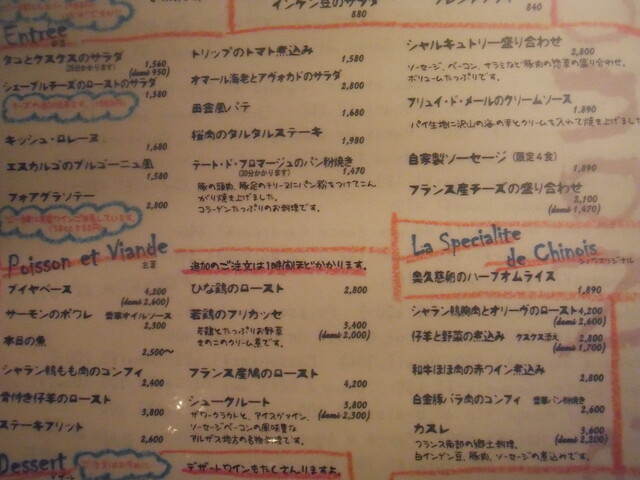 インゲン豆のサラダ
880
840
Entree
タコとクスクスのサラダ 1,560
(25分かかります) (demi 950)
シェーブルチーズのローストのサラダ
1,580
キッシュ・ロレーヌ
1,680
エスカルゴのブルゴーニュ風
1,580
フォアグラソテー
2,800
トリップのトマト煮込み 1,580
オマール海老とアヴォカドのサラダ
2,800
田舎風パテ
1,680
桜肉のタルタルステーキ
1,980
テート・ド・フロマージュのパン粉焼き
(20分かかります) 1,470
豚の頭肉、豚足のテリーヌにパン粉をつけてこん
がり焼き上げました。
コラーゲンたっぷりのお料理です。
シャルキュトリー盛り合わせ
2,800
ソーセージ、ベーコン、サラミなど豚肉の惣菜の盛り合わせ。
ボリュームたっぷりです。
フリュイ・ド・メールのクリームソース
1,890
パイ生地に沢山の海の幸とクリームを入れて焼き上げまし
自家製ソーセージ (限定4食)
1,890
フランス産チーズの盛り合わせ
2,100
(demi 1,470)
Poisson et Viande
主菜
追加のご注文は1時間ほどかかります。
ブイヤベース 4,200
(demi 2,600)
サーモンのポワレ 香草オイルソース
2,300
本日の魚
2,500〜
シャラン鴨もも肉のコンフィ
2,400
骨付き仔羊のロースト
3,800
ステーキフリット
2,600
ひな鶏のロースト
2,800
若鶏のフリカッセ
3,400
(demi 2,000)
若鶏とたっぷりお野菜
きのこのクリーム煮です。
フランス産鳩のロースト
4,200
シュークルート 3,800
(demi 2,300)
ザワークラウトと、アイスヴァイン、
ソーセージベーコンの風味豊な
アルザス地方の名物料理です。
La Specialite
de Chinois
シノワオリジナル
奥久慈卵のハーフオムライス
1,890
シャラン鴨胸肉とオリーヴのロースト 4,200
(demi 2,600)
仔羊と野菜の煮込み クスクス添え 2,800
(demi 1,700)
和牛ほほ肉の赤ワイン煮込み
2,800
白金豚バラ肉のコンフィ 香草パン粉焼き
2,600
カスレ 3,600
(demi 2,200)
フランス南部の郷土料理。
白インゲン豆、豚肉、ソーセージの煮込みです。
Dessert
デザートワインもたくさんありますよ。